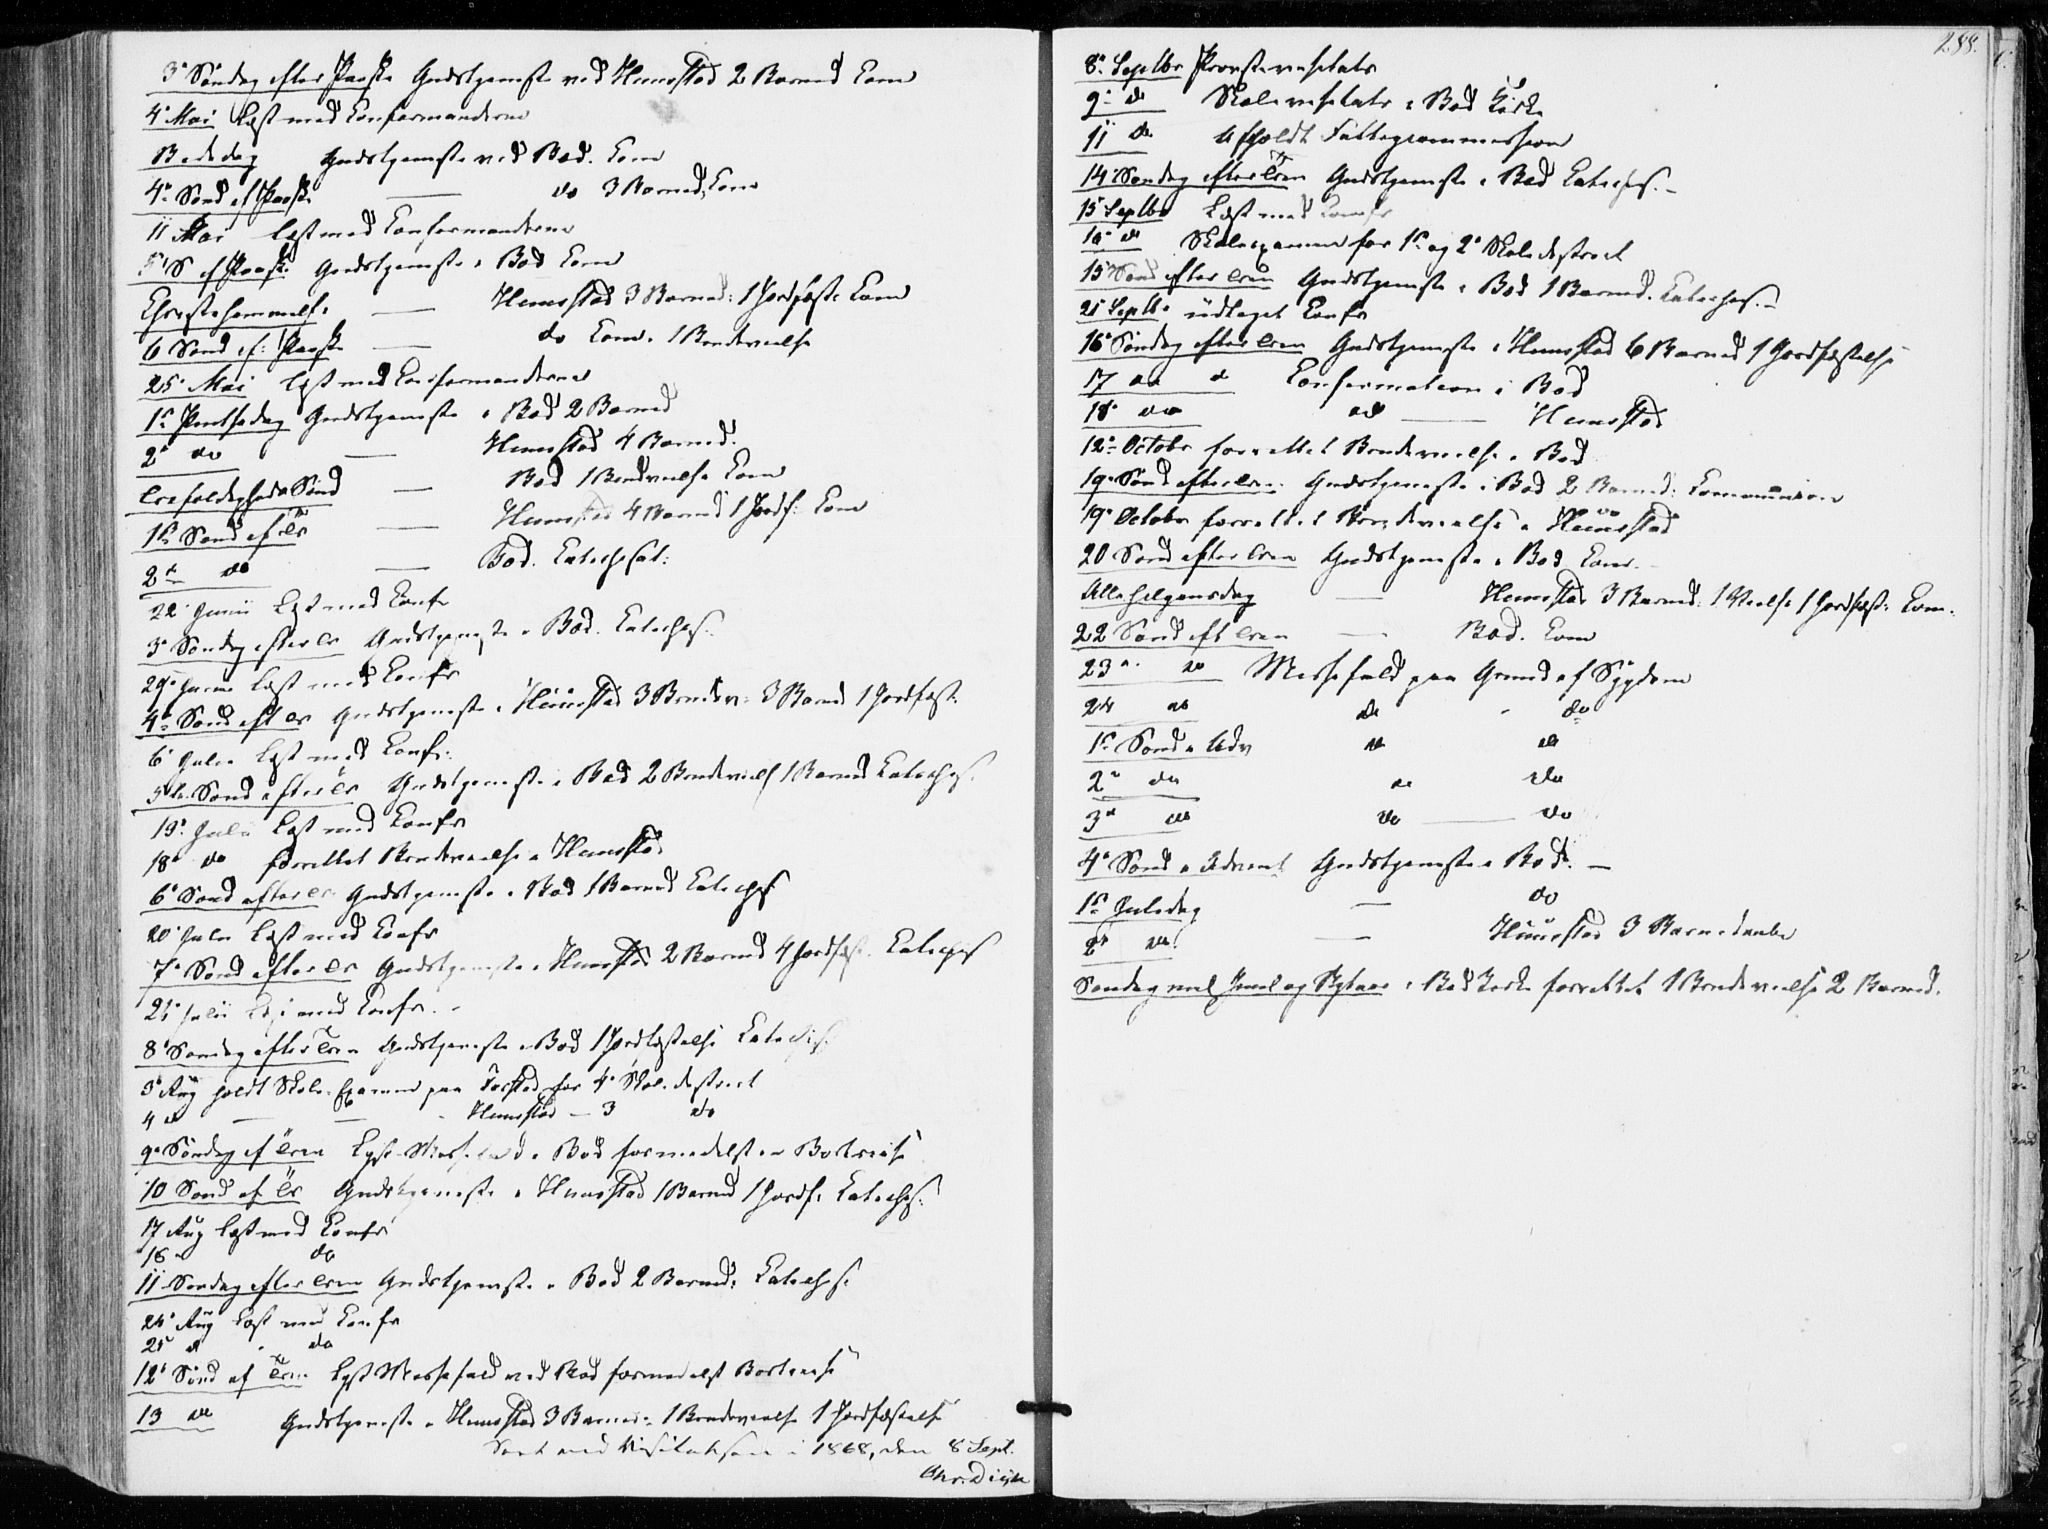 3die Søndag efter Paaske Gudstjeneste ved Hemstad 2 Barned Com
4 Mai Læst med Confirmanderne
Bededag Gudstjeneste ved Bod. Com
4de Sønd ef Paaske — do 3 Barned, Com
11 Mai læst med Confirmanderne
5te S ef Paaske Gudstjeneste i Bod Com
Christihimmelf. — 3 Barned: 1 Jordfæst: Com
6 Sønd ef: Paaske — do Com. 1 Brudevielse
25 Mai læst med Confirmanderne
1ste Pintsedag Gudstjeneste i Bod 2 Barned
2den do — 4 Barned.
Trefoldigheds Sønd — Bod 1 Brudvielse Com
1ste Sønd ef Tr — 4 Barned 1 Jordf: Com
2den do — Bod. Catechisat:
22 Junii Læst med Conf
3die Søndag efter Tr Gudstjeneste i Bod. Cateches.
29 Junii Læst med Conf
4de Sønd eft Tr Gudstjeneste i 3 Brudev: 3 Barned 1 Jordfæst:
6 Julii Læst med Conf:
5te Sønd efter Tr Gudstjeneste i Bod 2 Brudeviels 1 Barned Cateches.
13 Julii Læst med Conf
18 do forrettet Brudevielse i
6te Sønd efter Tr Gudstjeneste i Bod 1 Barned Cateches
20 Julii Læst med Conf
7de Sønd efter Tr Gudstjeneste i 2 Barned 4 Jordfæst. Cateches
Julii Læst med Conf. -
8de Søndag efter Trin Gudstjeneste i Bod 1 Jordfæstelse Cateches.
3 Aug holdt Skole-Examen paa for 4de Skoledistrict
4 do — — - — 3 do
9de Søndag ef Trin Lyst Messefald i Bod formedelst Bortreise
10 Sønd ef Tr Gudstjeneste i 1 Barned 1 Jordf: Cateches:
17 Aug læst med Conf
18 do
11 Søndag efter Trin Gudstjeneste i Bod 2 Barned: Cateches.
24 Aug Læst med Conf
25 d - do
12te Sønd ef Trin Lyst Messefald ved Bod formedelst Bortreise
13 do Gudstjeneste i 3 Barned: 1 Brudevielse 1 Jordfæstelse
Seet ved Visitatsen i 1868, den 8 Sept.
288.
8 Septbr Provstevisitats
9 do Skolevisitats i Bod Kirke
11 do Afholdt Fattigcommission
14 Søndag efter Trin Gudstjeneste i Bod Cateches. -
15 Septbr Læst med Conf
16 do Skoleexamen for 1ste og 2de Skoledistrict
15 Sønd efter Trin Gudstjeneste i Bod 1 Barned. Cateches. -
21 Septbr udtaget Conf
16 Søndag efter Trin Gudstjeneste i 6 Barned 1 Jordfæstelse
17 do d Confirmation i Bod
18 do do —
12te Octobr forrettet Brudevielse i Bod
19 Sønd efter Trin Gudstjeneste i Bod 2 Barned: Communion
19 Octobr forrettet Brudevielse i
20 Sønd efter Trin Gudstjeneste i Bod Com. -
Allehelgensdag — 3 Barned: 1 Vielse 1 Jordfæst: Com.
22 Sønd eft Trin — Bod. Com
23 do Messefald paa Grund af Sygdom
24 do do - do
1ste Sønd i Adv do do
2den do do do
3die do do — do
4de Sønd i Advent Gudstjeneste i Bod. —
1ste Juledag — do
2den do. — 3 Barnedaabe
Søndag mel Juul og Nytaar i Bod Kirke forrettet 1 Brudevielse 2 Barned.